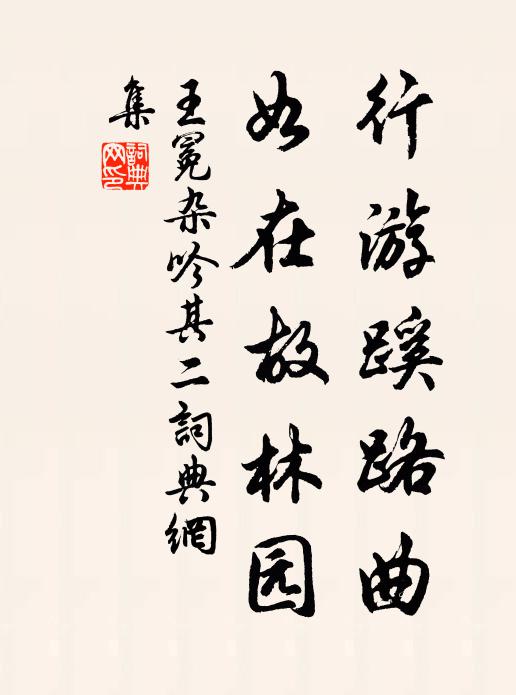 行游蹊路曲
如在故林园
王冕杂吟其二詞典網
集
詞典網印